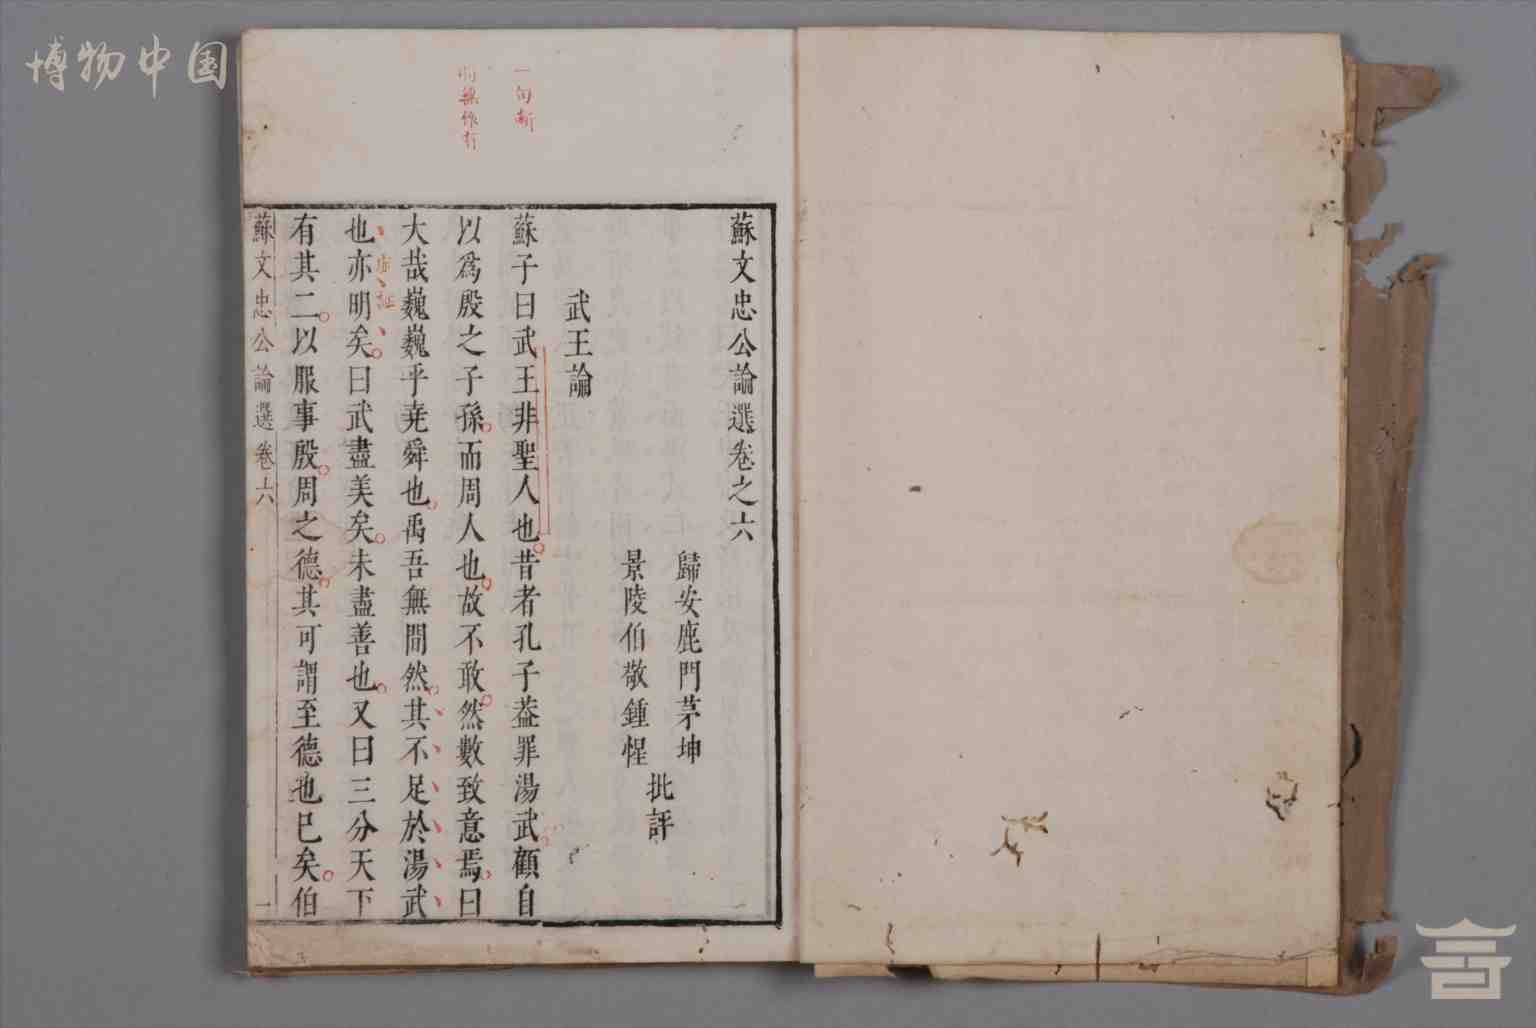 博物中国
蘇文忠公論選卷之六
歸安鹿門茅坤
景陵伯敬鍾惺
批評
武王論
蘇子曰武王非聖人也昔者孔子葢罪湯武顧自
以爲殷之子孫而周人也故不敢然數致意焉曰
大哉巍巍乎堯舜也禹吾無間然其不足於湯武
也亦明矣曰武盡美矣未盡善也又曰三分天下
有其二以服事殷周之德其可謂至德也已矣伯
蘇文忠公論選卷六
一
一句斷